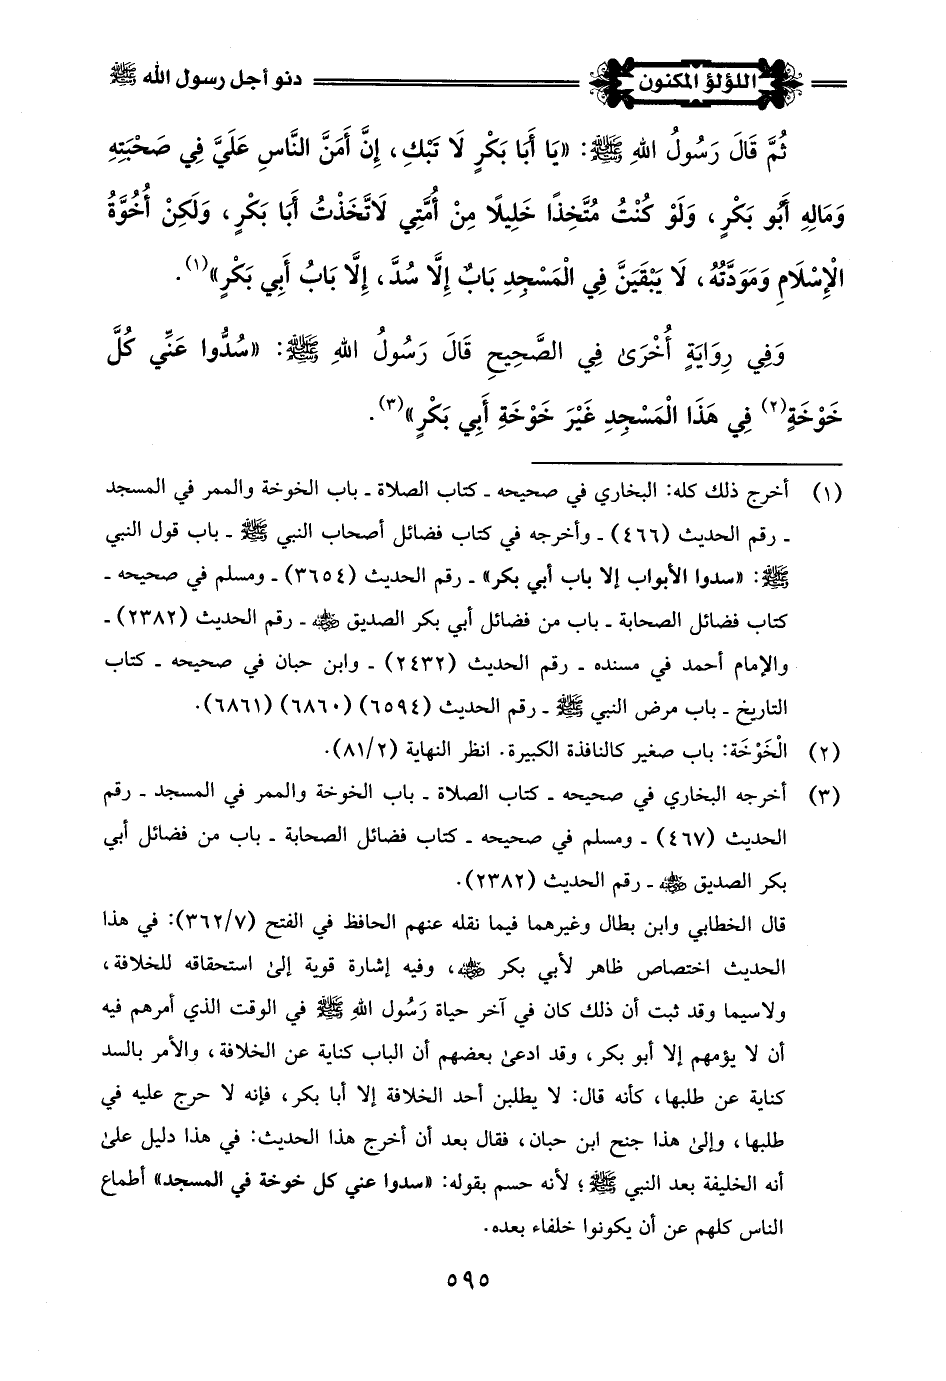 اللؤلؤ المكنون دنو أجل رسول الله ﷺ
ثُمَّ قَالَ رَسُولُ اللهِ ﷺ: «يَا أَبَا بَكْرٍ لَا تَبْكِ، إِنَّ أَمَنَّ النَّاسِ عَلَيَّ فِي صَحْبَتِهِ
وَمَالِهِ أَبُو بَكْرٍ، وَلَوْ كُنْتُ مُتَّخِذًا خَلِيلًا مِنْ أُمَّتِي لَاتَّخَذْتُ أَبَا بَكْرٍ، وَلَكِنْ أُخُوَّةُ
الْإِسْلَامِ وَمَوَدَّتُهُ، لَا يَبْقَيَنَّ فِي الْمَسْجِدِ بَابٌ إِلَّا سُدَّ، إِلَّا بَابُ أَبِي بَكْرٍ»(١).
وَفِي رِوَايَةٍ أُخْرَىٰ فِي الصَّحِيحِ قَالَ رَسُولُ اللهِ ﷺ: «سُدُّوا عَنِّي كُلَّ
خَوْخَةٍ(٢) فِي هَذَا الْمَسْجِدِ غَيْرَ خَوْخَةِ أَبِي بَكْرٍ»(٣).
(١) أخرج ذلك كله: البخاري في صحيحه ـ كتاب الصلاة ـ باب الخوخة والممر في المسجد
ـ رقم الحديث (٤٦٦) ـ وأخرجه في كتاب فضائل أصحاب النبي ﷺ ـ باب قول النبي
ﷺ: «سدوا الأبواب إلا باب أبي بكر» ـ رقم الحديث (٣٦٥٤) ـ ومسلم في صحيحه ـ
كتاب فضائل الصحابة ـ باب من فضائل أبي بكر الصديق رضي الله عنه ـ رقم الحديث (٢٣٨٢) ـ
والإمام أحمد في مسنده ـ رقم الحديث (٢٤٣٢) ـ وابن حبان في صحيحه ـ كتاب
التاريخ ـ باب مرض النبي ﷺ ـ رقم الحديث (٦٥٩٤) (٦٨٦٠) (٦٨٦١).
(٢) الْخَوْخَة: باب صغير كالنافذة الكبيرة. انظر النهاية (٨١/٢).
(٣) أخرجه البخاري في صحيحه ـ كتاب الصلاة ـ باب الخوخة والممر في المسجد ـ رقم
الحديث (٤٦٧) ـ ومسلم في صحيحه ـ كتاب فضائل الصحابة ـ باب من فضائل أبي
بكر الصديق رضي الله عنه ـ رقم الحديث (٢٣٨٢).
قال الخطابي وابن بطال وغيرهما فيما نقله عنهم الحافظ في الفتح (٣٦٢/٧): في هذا
الحديث اختصاص ظاهر لأبي بكر رضي الله عنه، وفيه إشارة قوية إلىٰ استحقاقه للخلافة،
ولاسيما وقد ثبت أن ذلك كان في آخر حياة رَسُول اللهِ ﷺ في الوقت الذي أمرهم فيه
أن لا يؤمهم إلا أبو بكر، وقد ادعىٰ بعضهم أن الباب كناية عن الخلافة، والأمر بالسد
كناية عن طلبها، كأنه قال: لا يطلبن أحد الخلافة إلا أبا بكر، فإنه لا حرج عليه في
طلبها، وإلىٰ هذا جنح ابن حبان، فقال بعد أن أخرج هذا الحديث: في هذا دليل علىٰ
أنه الخليفة بعد النبي ﷺ؛ لأنه حسم بقوله: «سدوا عني كل خوخة في المسجد» أطماع
الناس كلهم عن أن يكونوا خلفاء بعده.
٥٩٥